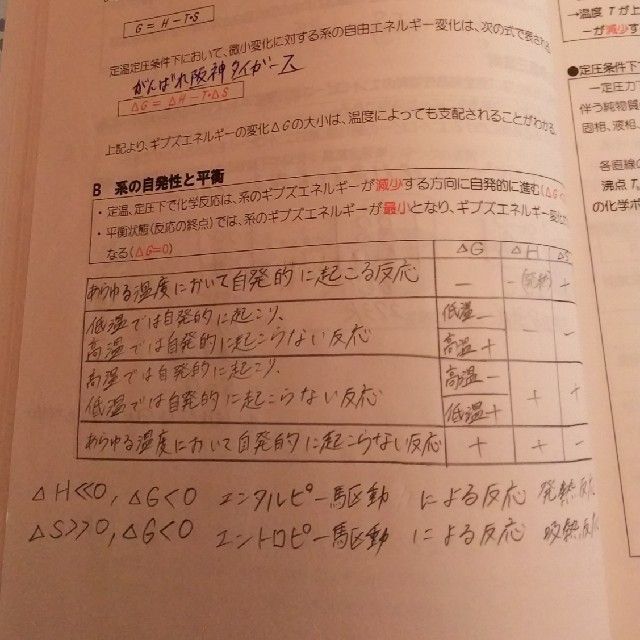 G = H − T・S
定温定圧条件下において、微小変化に対する系の自由エネルギー変化は、次の式で表される
がんばれ阪神タイガース
ΔG = ΔH − T・ΔS
上記より、ギブズエネルギーの変化ΔGの大小は、温度によっても支配されることがわかる
B 系の自発性と平衡
・定温、定圧下で化学反応は、系のギブズエネルギーが減少する方向に自発的に進む(ΔG<
・平衡状態(反応の終点)では、系のギブズエネルギーが最小となり、ギブズエネルギー変化
なる(ΔG=0)
ΔG ΔH ΔS
あらゆる温度において自発的に起こる反応 − −(発熱) +
低温では自発的に起こり、 低温−
高温では自発的に起こらない反応 高温+ − −
高温では自発的に起こり、 高温−
低温では自発的に起こらない反応 低温+ + +
あらゆる温度において自発的に起こらない反応 + + −
ΔH≪0, ΔG<0 エンタルピー駆動 による反応 発熱反応
ΔS≫0, ΔG<0 エントロピー駆動 による反応 吸熱反応
→温度Tが上
ーが減少す
●定圧条件下
一定圧力
伴う純物質
固相、液相、
各直線の
沸点T
の化学ポ